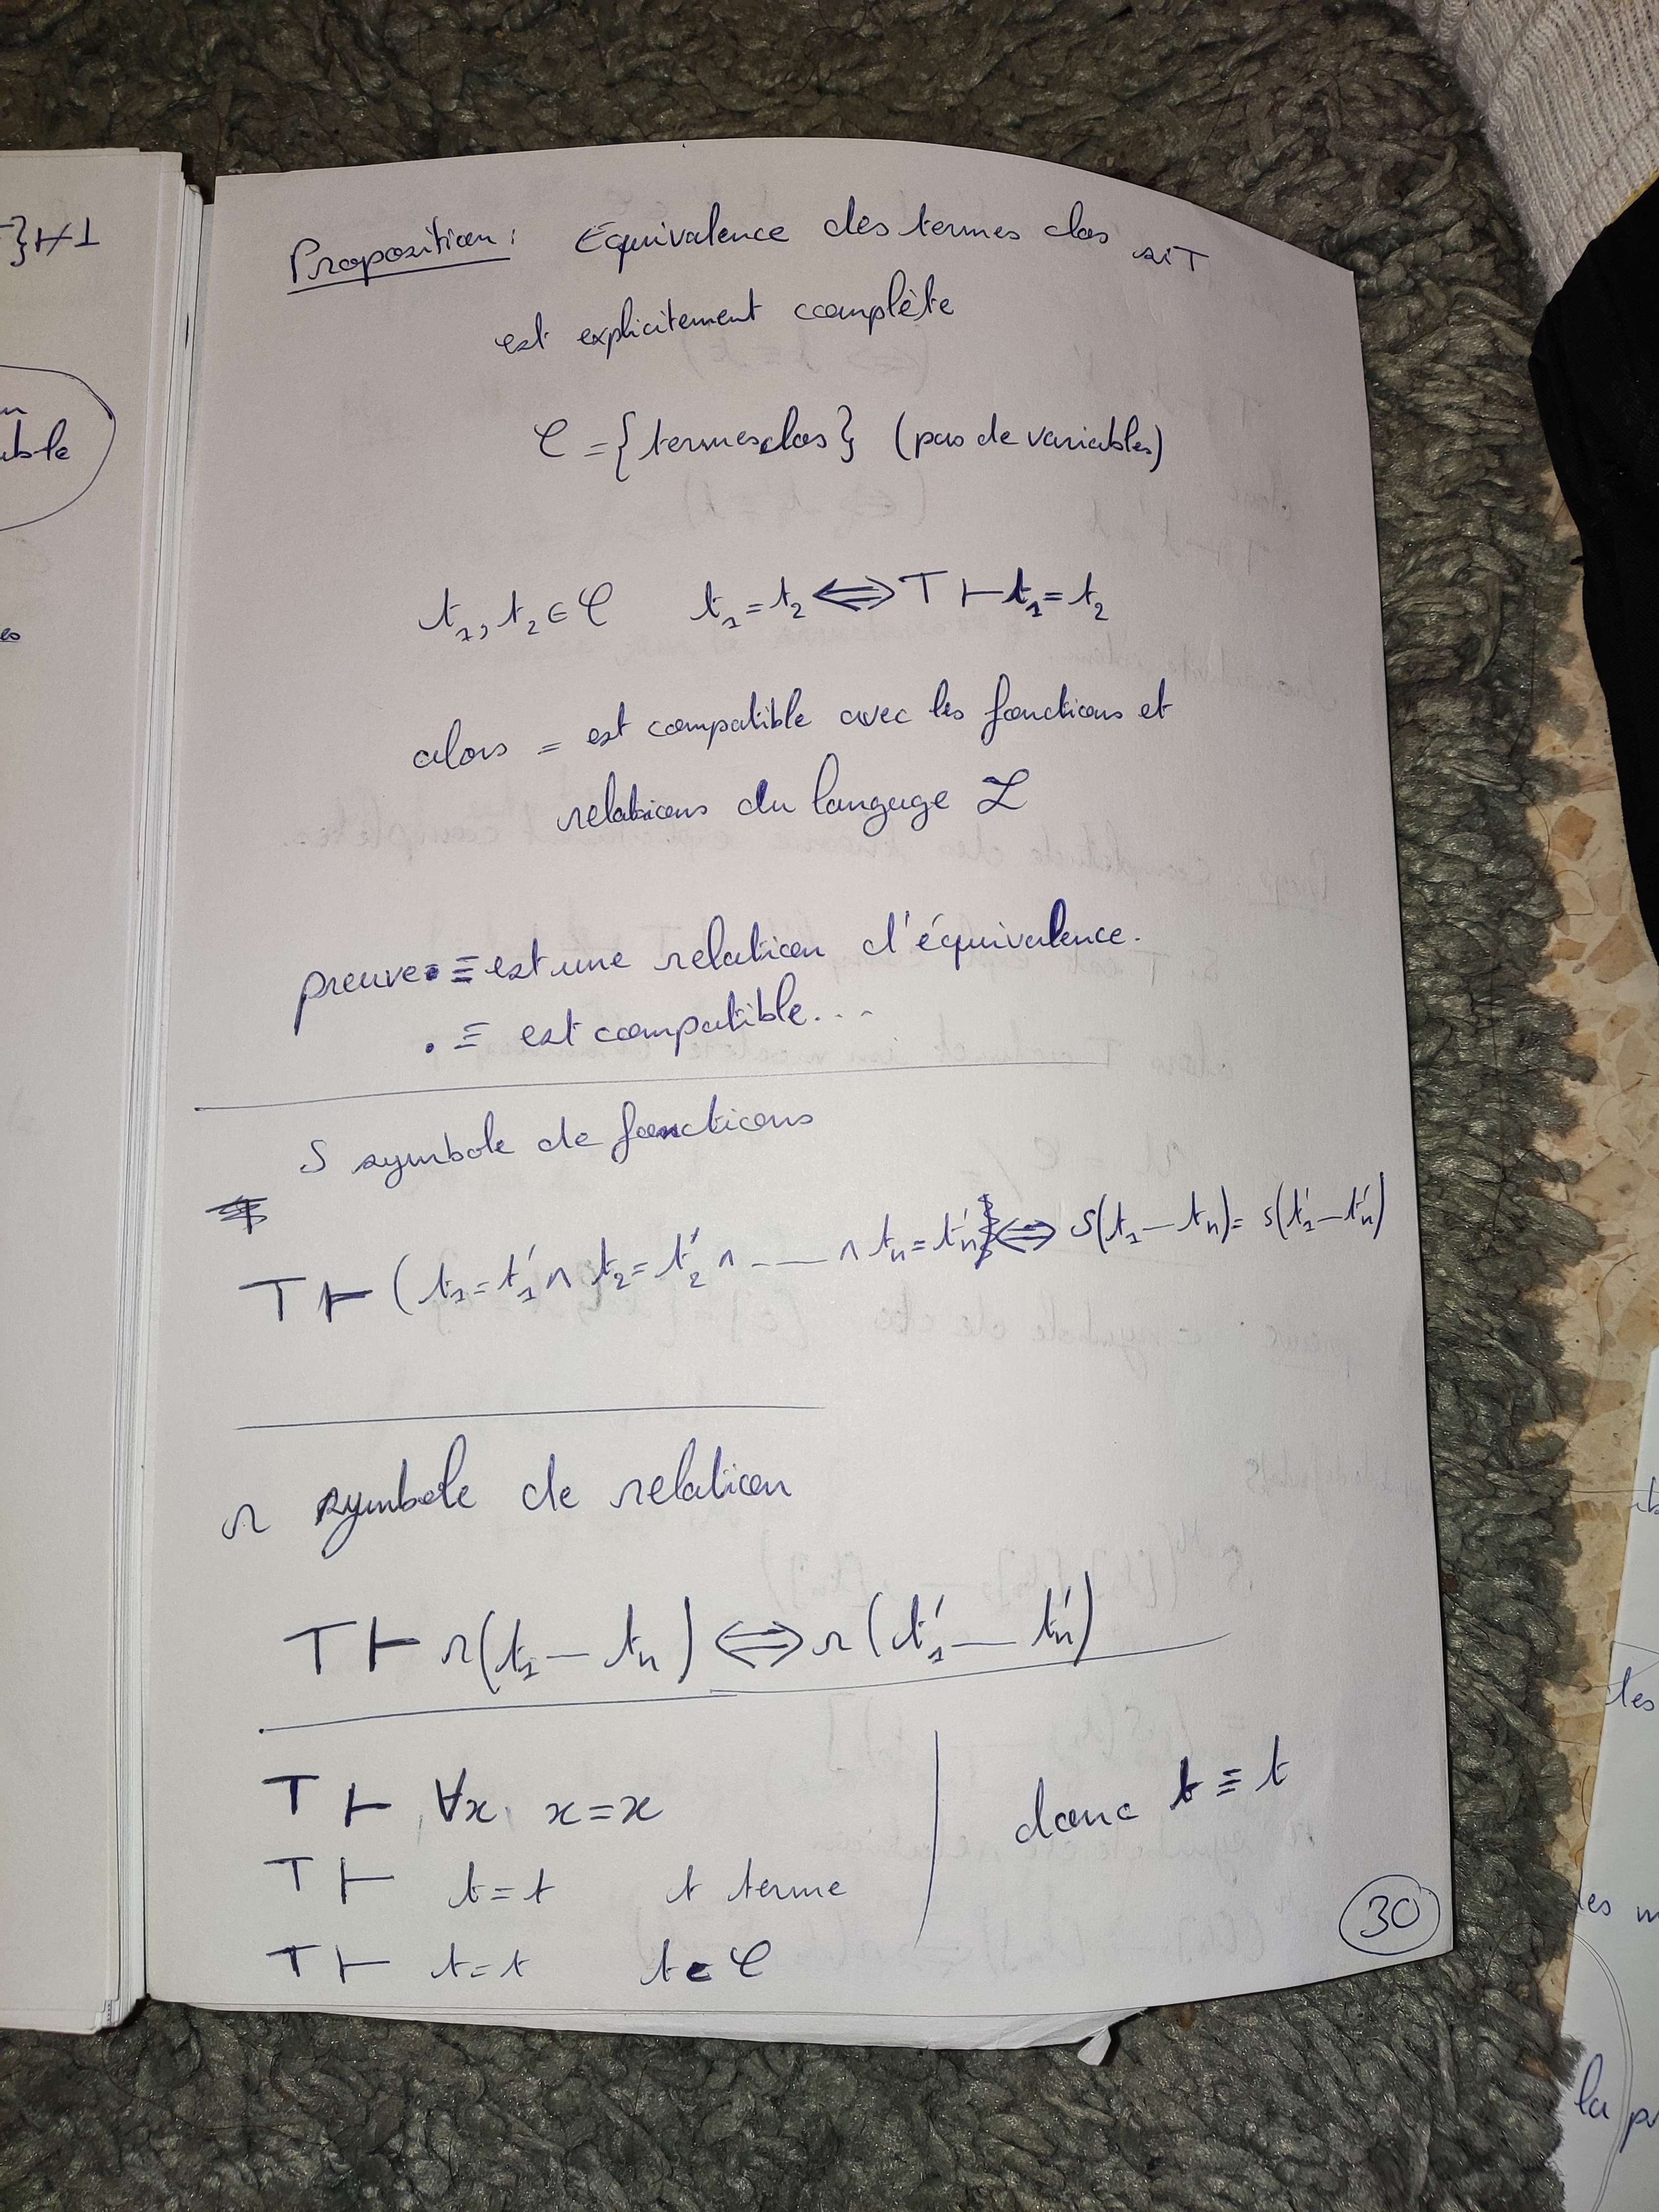 }⊬⊥
uble
Proposition : Equivalence des termes clos si T
est explicitement complète
𝒞 = {termes clos} (pas de variables)
t₁, t₂ ∈ 𝒞 t₁ = t₂ ⟺ T ⊢ t₁ = t₂
alors = est compatible avec les fonctions et
relations du langage ℒ
preuve • ≡ est une relation d'équivalence.
• ≡ est compatible...
S symbole de fonctions
T ⊢ (t₁ = t'₁ ∧ t₂ = t'₂ ∧ ... ∧ tₙ = t'ₙ) ⟺ S(t₁ — tₙ) = S(t'₁ — t'ₙ)
r symbole de relation
T ⊢ r(t₁ — tₙ) ⟺ r(t'₁ — t'ₙ)
T ⊢ ∀x, x = x
T ⊢ t = t t terme
T ⊢ t = t t ∈ 𝒞
donc t ≡ t
30
les
les m
la p